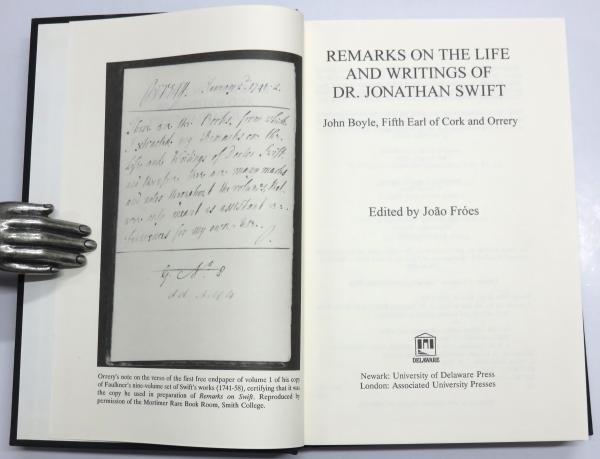 Orrery. January 2d. 1741-2.
These are the Books, from which
I extracted my Remarks on the
Life and Writings of Doctor Swift,
and therefore there are many marks
and notes throughout the volumes, that
were only meant as assistant
for my own
Orrery's note on the verso of the first free endpaper of volume 1 of his copy
of Faulkner's nine-volume set of Swift's works (1741-58), certifying that it was
the copy he used in preparation of Remarks on Swift. Reproduced by
permission of the Mortimer Rare Book Room, Smith College.
REMARKS ON THE LIFE
AND WRITINGS OF
DR. JONATHAN SWIFT
John Boyle, Fifth Earl of Cork and Orrery
Edited by João Fróes
DELAWARE
Newark: University of Delaware Press
London: Associated University Presses